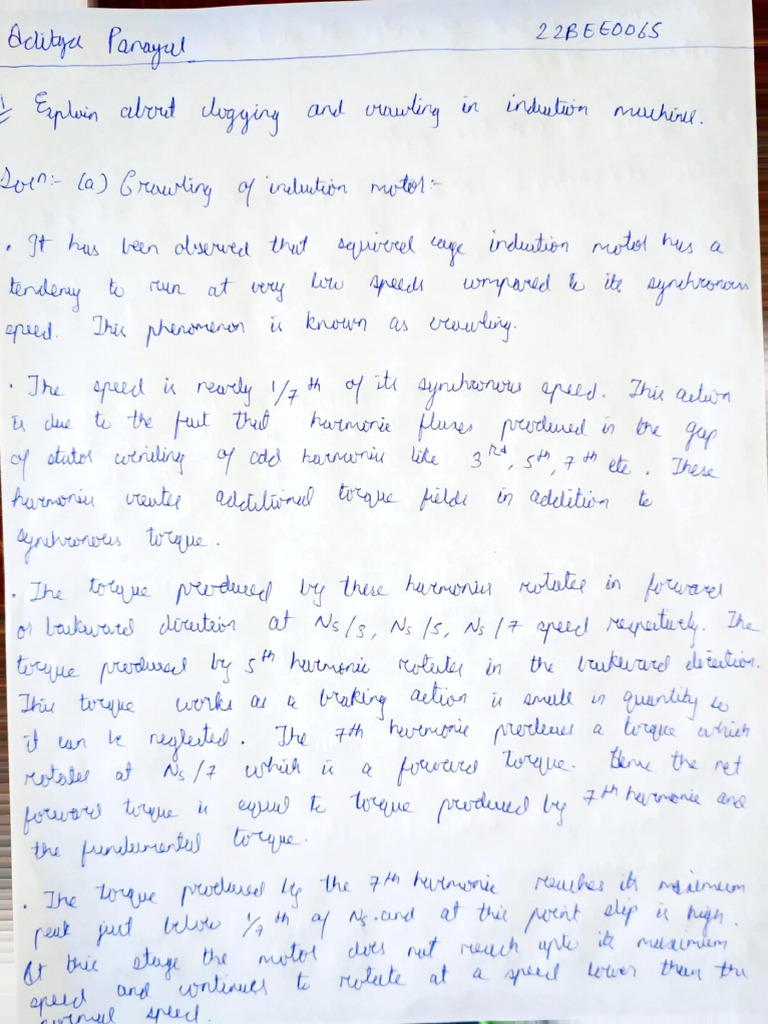 Aditya Panayal 22BEE0065
Explain about clogging and crawling in induction machine.
Soln:- (a) Crawling of induction motor:-
• It has been observed that squirrel cage induction motor has a
tendency to run at very low speeds compared to its synchronous
speed. This phenomenon is known as crawling.
• The speed is nearly 1/7th of its synchronous speed. This action
is due to the fact that harmonic fluxes produced in the gap
of stator winding of odd harmonic like 3rd, 5th, 7th etc. These
harmonics creates additional torque fields in addition to
synchronous torque.
• The torque produced by these harmonics rotates in forward
or backward direction at Ns/3, Ns/5, Ns/7 speed respectively. The
torque produced by 5th harmonic rotates in the backward direction.
This torque works as a braking action is small in quantity so
it can be neglected. The 7th harmonic produces a torque which
rotates at Ns/7 which is a forward torque. Hence the net
forward torque is equal to torque produced by 7th harmonic and
the fundamental torque.
• The torque produced by the 7th harmonic reaches its maximum
peak just below 1/7th of Ns. and at this point slip is high.
At this stage the motor does not reach upto its maximum
speed and continues to rotate at a speed lower than the
normal speed.